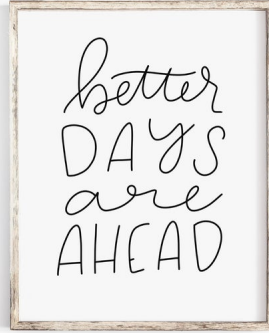 better
DAYS
are
AHEAD